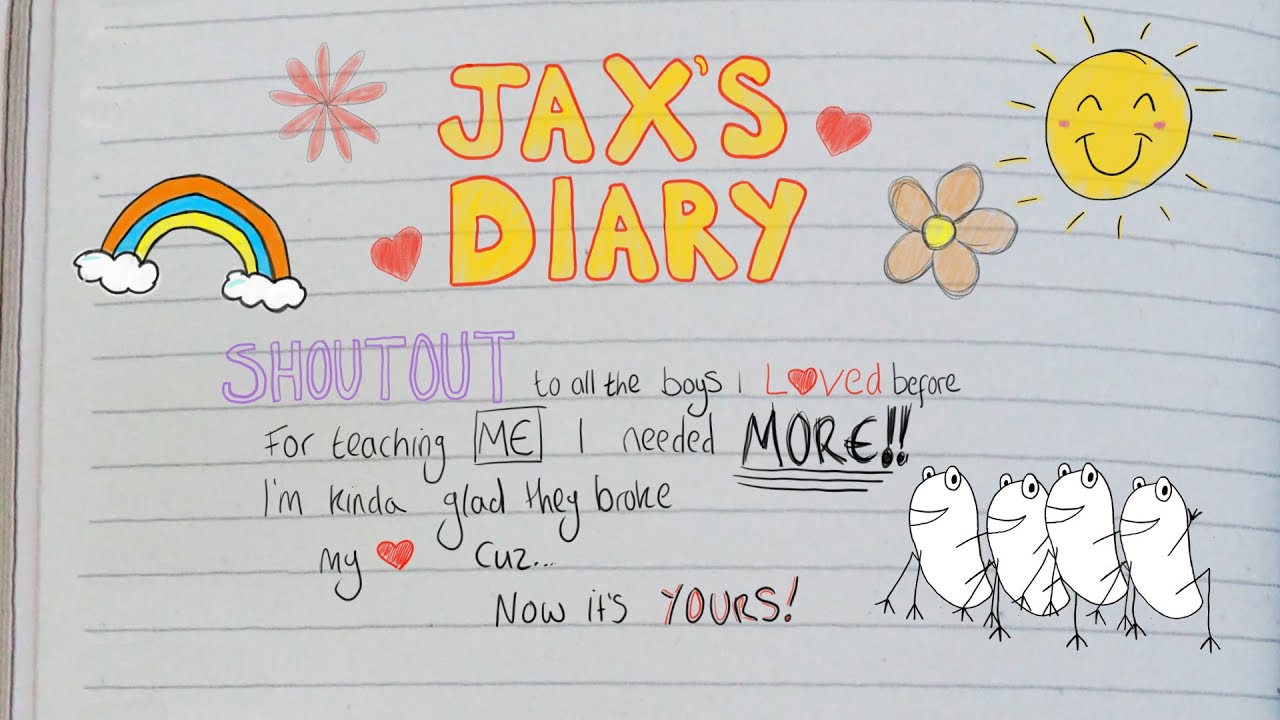 JAX'S
DIARY
SHOUTOUT to all the boys I LOVED before
For teaching ME I needed MORE!!
I'm kinda glad they broke
my ❤ cuz...
Now it's YOURS!